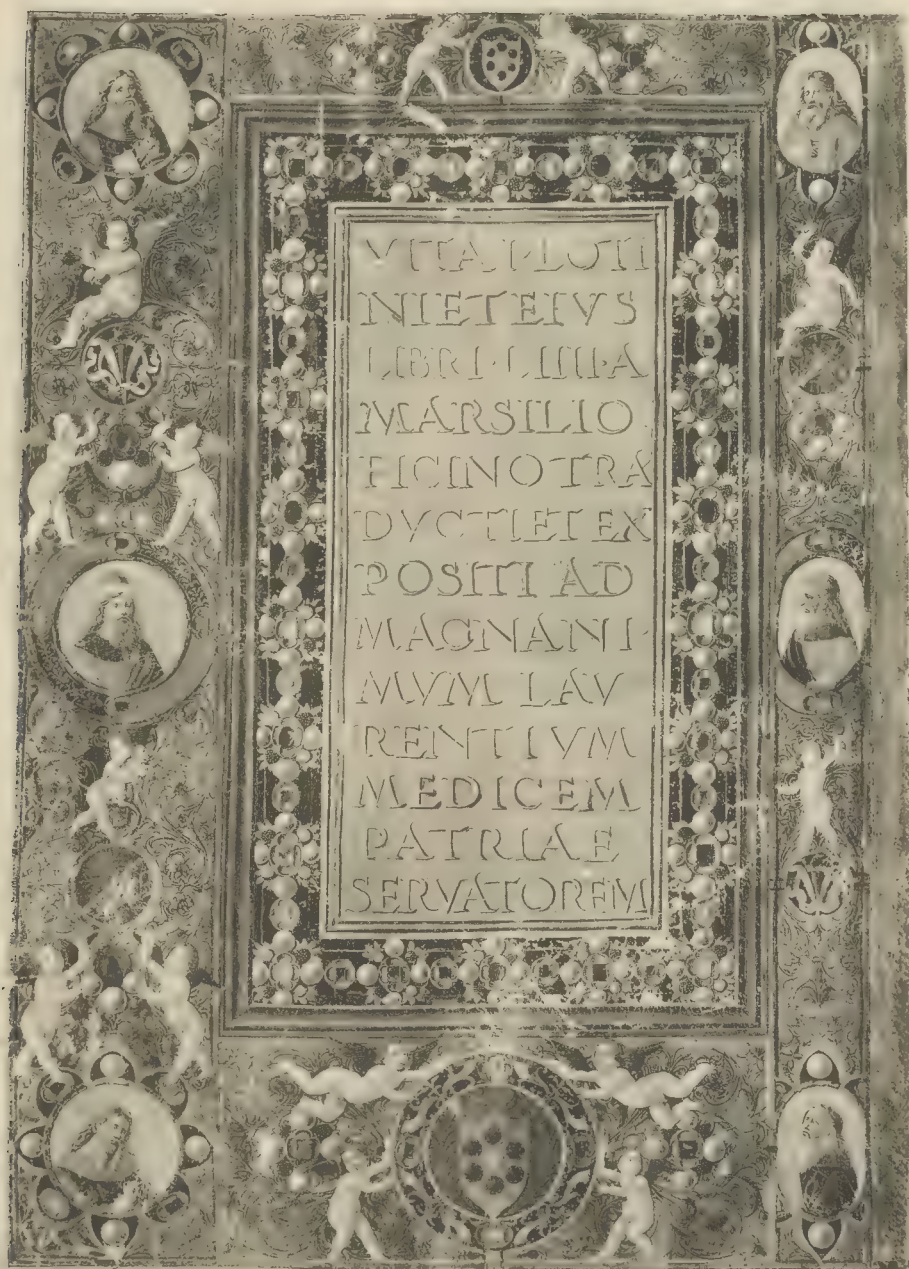 VITA PLOTI
NI ET EIVS
LIBRI·LIIII·A
MARSILIO
FICINO TRA
DVCTI ET EX
POSITI AD
MAGNANI·
MVM LAV
RENTIVM
MEDICEM
PATRIAE
SERVATOREM